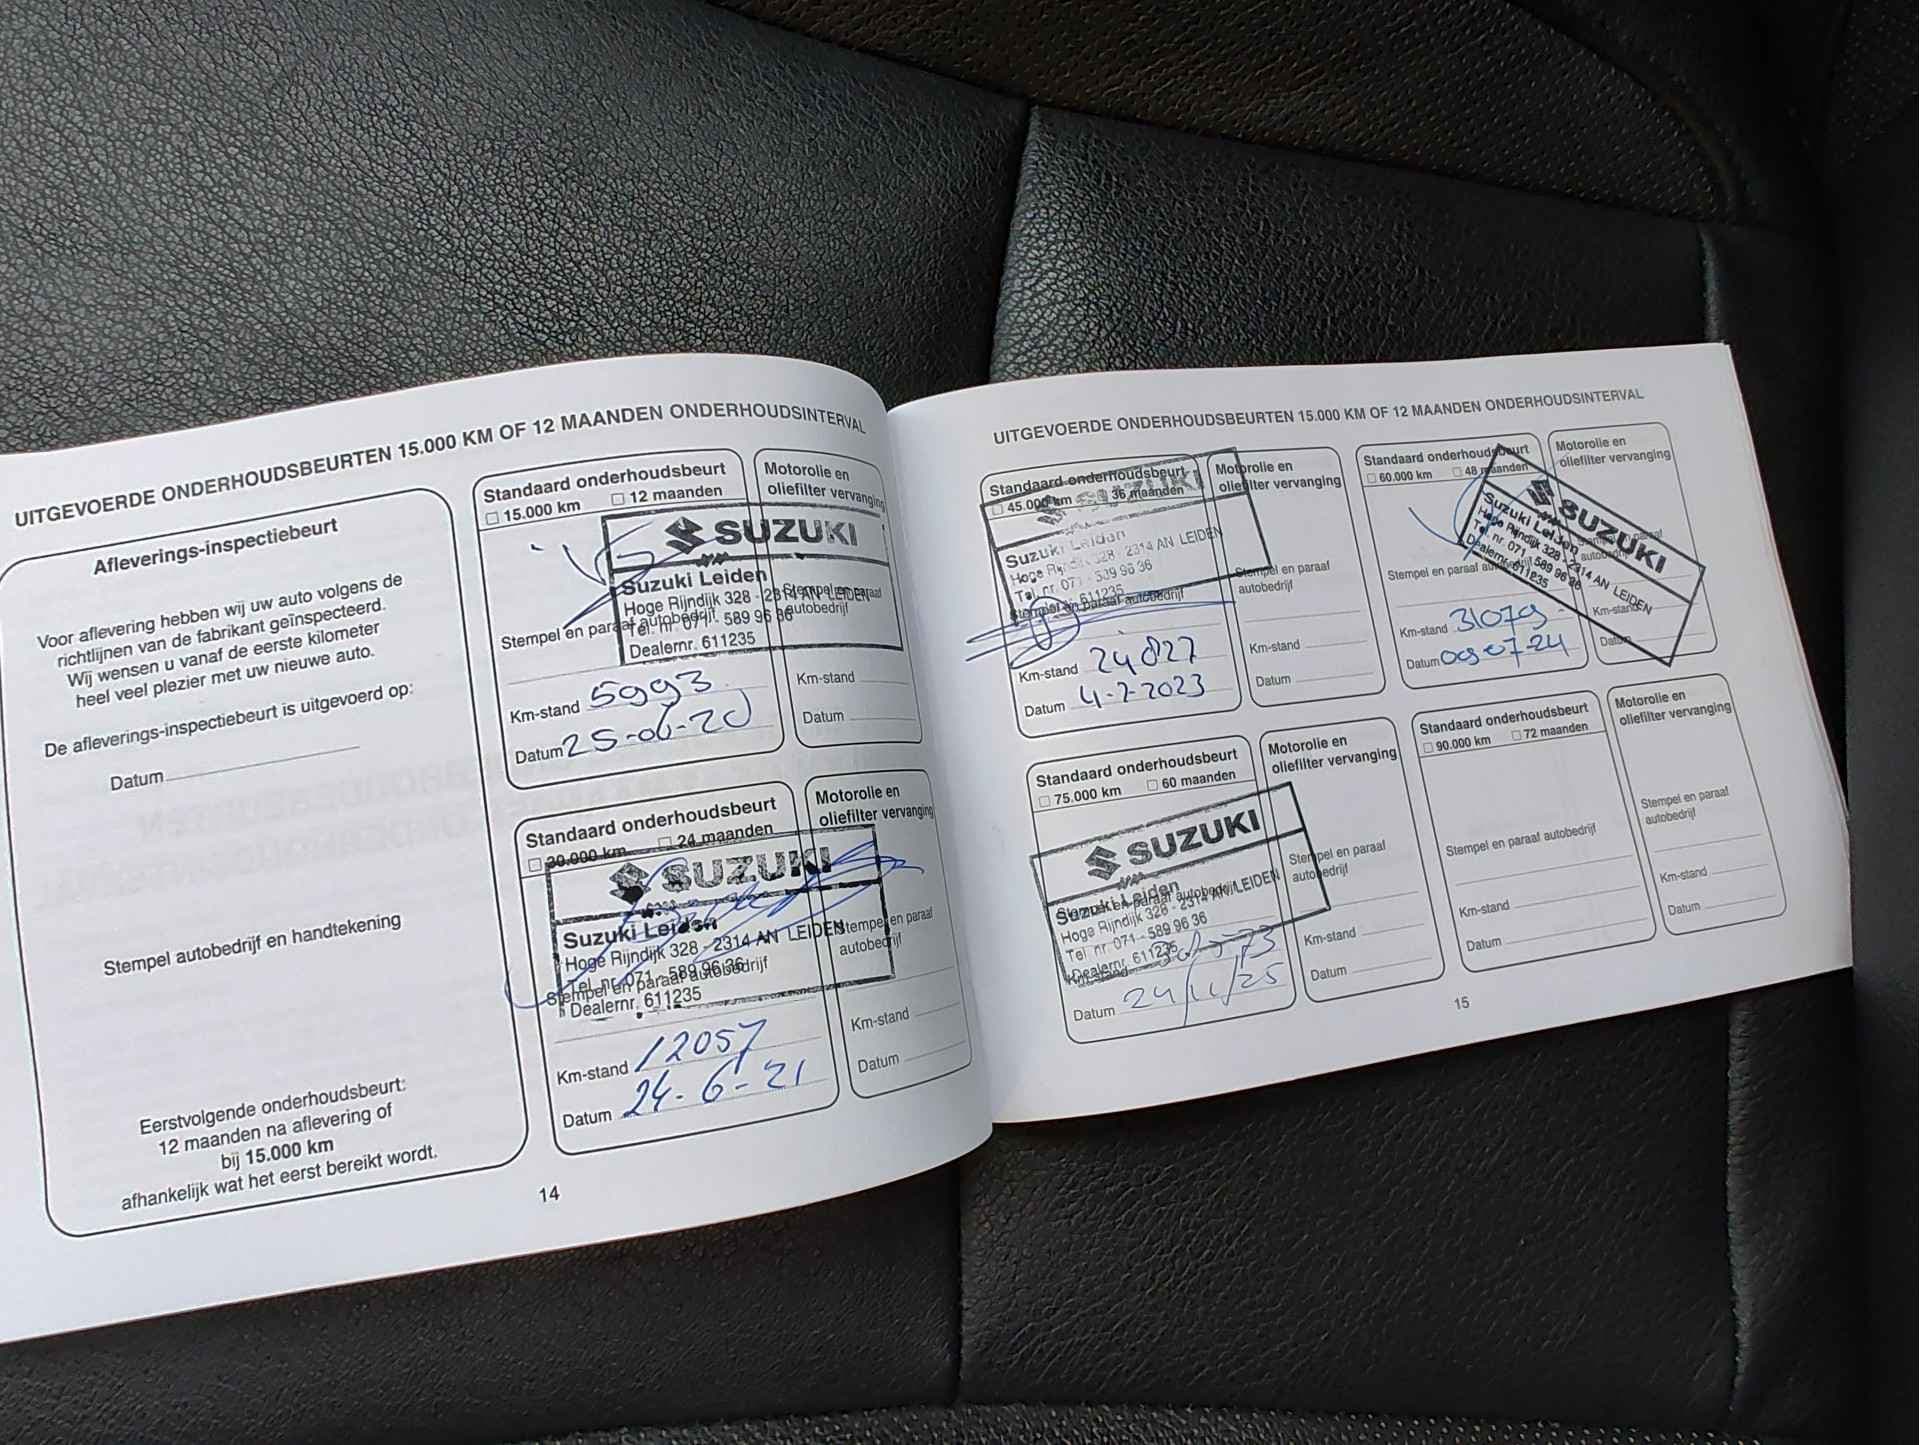 UITGEVOERDE ONDERHOUDSBEURTEN 15.000 KM OF 12 MAANDEN ONDERHOUDSINTERVAL
Afleverings-inspectiebeurt
Voor aflevering hebben wij uw auto volgens de
richtlijnen van de fabrikant geïnspecteerd.
Wij wensen u vanaf de eerste kilometer
heel veel plezier met uw nieuwe auto.
De afleverings-inspectiebeurt is uitgevoerd op:
Datum
Stempel autobedrijf en handtekening
Eerstvolgende onderhoudsbeurt:
12 maanden na aflevering of
bij 15.000 km
afhankelijk wat het eerst bereikt wordt.
Standaard onderhoudsbeurt
15.000 km 12 maanden
SUZUKI
Suzuki Leiden
Hoge Rijndijk 328 - 2314 AN LEIDEN
Tel. nr. 071 - 589 96 36
Dealernr. 611235
Stempel en paraaf autobedrijf
Km-stand 5993
Datum 25-06-20
Motorolie en
oliefilter vervanging
Stempel en paraaf
autobedrijf
Km-stand
Datum
Standaard onderhoudsbeurt
30.000 km 24 maanden
SUZUKI
Suzuki Leiden
Hoge Rijndijk 328 - 2314 AN LEIDEN
Tel. nr. 071 - 589 96 36
Stempel en paraaf autobedrijf
Dealernr. 611235
Km-stand 12057
Datum 24-6-21
Motorolie en
oliefilter vervanging
Stempel en paraaf
autobedrijf
Km-stand
Datum
14
UITGEVOERDE ONDERHOUDSBEURTEN 15.000 KM OF 12 MAANDEN ONDERHOUDSINTERVAL
Standaard onderhoudsbeurt
45.000 km 36 maanden
SUZUKI
Suzuki Leiden
Hoge Rijndijk 328 - 2314 AN LEIDEN
Tel. nr. 071 - 589 96 36
611235
Stempel en paraaf autobedrijf
Km-stand 24827
Datum 4-7-2023
Motorolie en
oliefilter vervanging
Stempel en paraaf
autobedrijf
Km-stand
Datum
Standaard onderhoudsbeurt
60.000 km 48 maanden
SUZUKI
Suzuki Leiden
Hoge Rijndijk 328 - 2314 AN LEIDEN
Tel. nr. 071 - 589 96 36
Dealernr. 611235
Stempel en paraaf
Km-stand 31079
Datum 09-07-24
Motorolie en
oliefilter vervanging
Stempel en paraaf
autobedrijf
Km-stand
Datum
Standaard onderhoudsbeurt
75.000 km 60 maanden
SUZUKI
Suzuki Leiden
Stempel en paraaf autobedrijf
Hoge Rijndijk 328 - 2314 AN LEIDEN
Tel. nr. 071 - 589 96 36
Dealernr. 611235
Km-stand
Datum 24/11/25
Motorolie en
oliefilter vervanging
Stempel en paraaf
autobedrijf
Km-stand
Datum
Standaard onderhoudsbeurt
90.000 km 72 maanden
Stempel en paraaf autobedrijf
Km-stand
Datum
Motorolie en
oliefilter vervanging
Stempel en paraaf
autobedrijf
Km-stand
Datum
15